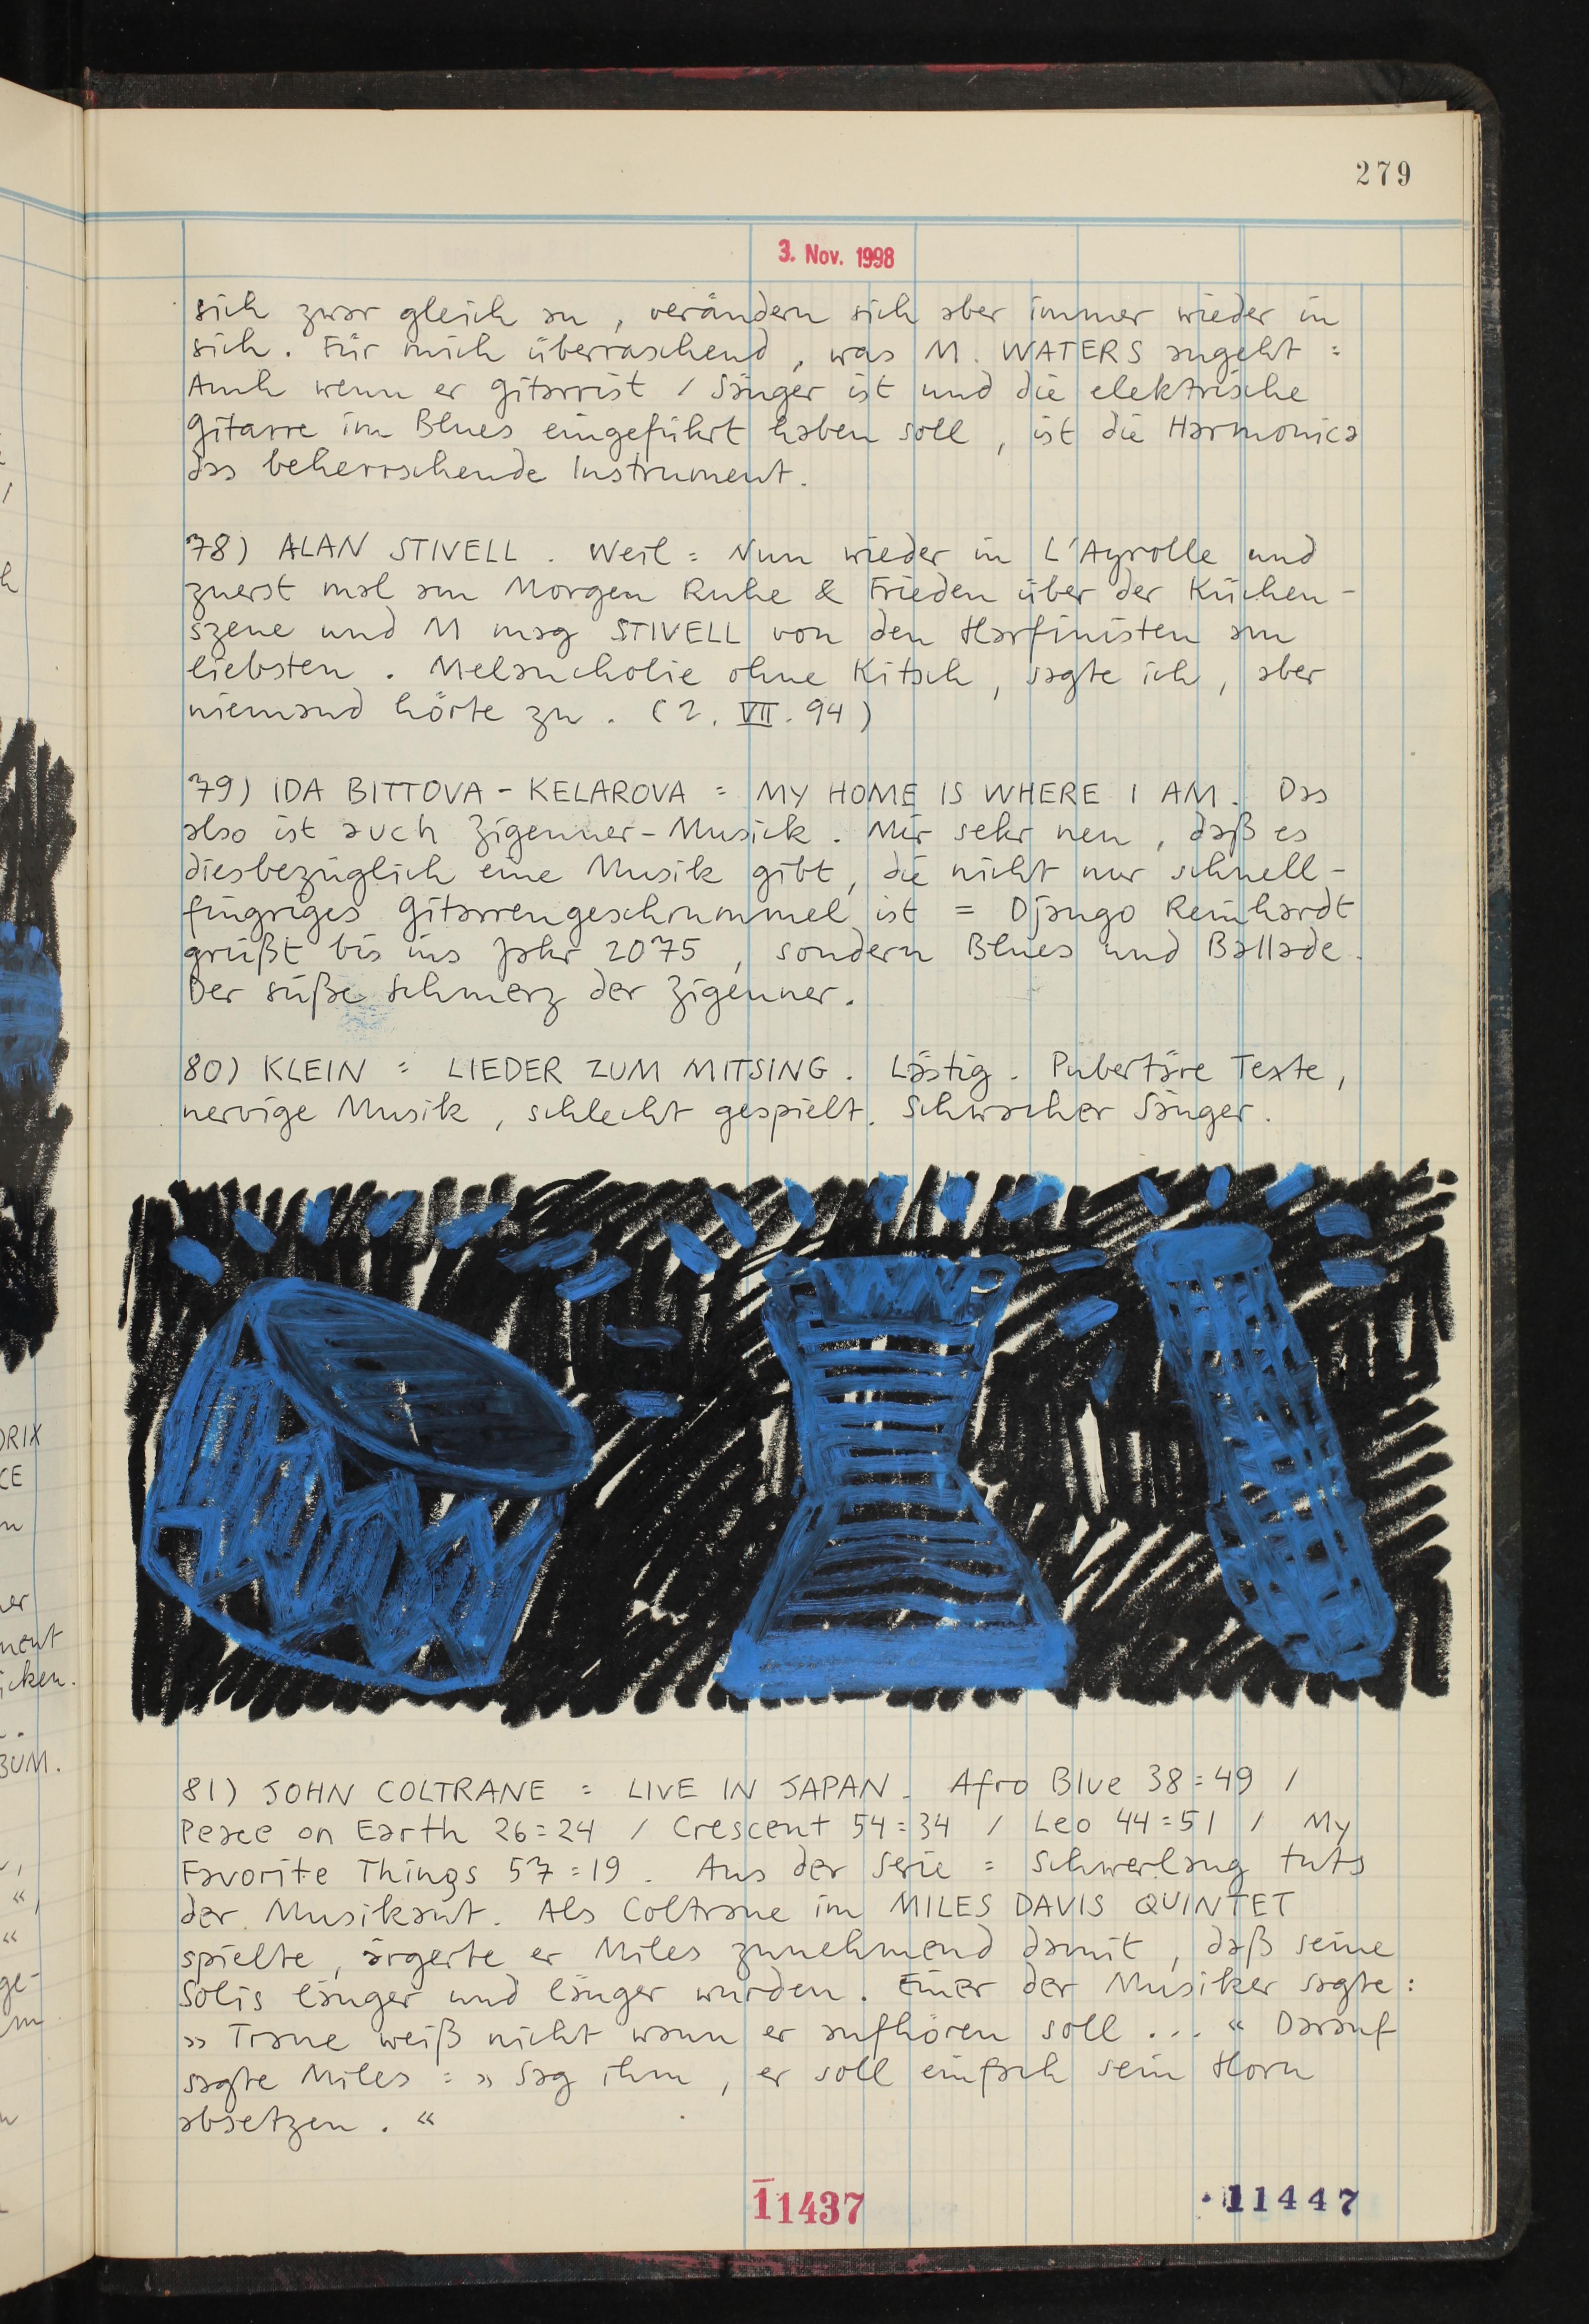 279
3. Nov. 1998
sich zwar gleich an, verändern sich aber immer wieder in
sich. Für mich überraschend, was M. WATERS angeht :
Auch wenn er Gitarrist / Sänger ist und die elektrische
Gitarre im Blues eingeführt haben soll, ist die Harmonica
das beherrschende Instrument.
78) ALAN STIVELL. Weil : Nun wieder in L'Ayrolle und
zuerst mal am Morgen Ruhe & Frieden über der Küchen-
szene und M mag STIVELL von den Harfinisten am
liebsten. Melancholie ohne Kitsch, sagte ich, aber
niemand hörte zu. (2. VII. 94)
79) IDA BITTOVA - KELAROVA : MY HOME IS WHERE I AM. Das
also ist auch Zigeuner-Musick. Mir sehr neu, daß es
diesbezüglich eine Musik gibt, die nicht nur schnell-
fingriges Gitarrengeschrummel ist = Django Reinhardt
grüßt bis ins Jahr 2075, sondern Blues und Ballade.
Der süße Schmerz der Zigeuner.
80) KLEIN : LIEDER ZUM MITSING. Lästig. Pubertäre Texte,
nervige Musik, schlecht gespielt. Schwacher Sänger.
81) JOHN COLTRANE : LIVE IN JAPAN. Afro Blue 38:49 /
Peace on Earth 26:24 / Crescent 54:34 / Leo 44:51 / My
Favorite Things 57:19. Aus der Serie : Schwerlang tuts
der Musikant. Als Coltrane im MILES DAVIS QUINTET
spielte, ärgerte er Miles zunehmend damit, daß seine
Solis länger und länger wurden. Einer der Musiker sagte :
» Trane weiß nicht wann er aufhören soll ... « Darauf
sagte Miles : » Sag ihm, er soll einfach sein Horn
absetzen. «
11437
11447
ORIX
CE
ner
ment
icken.
BUM.
ge-